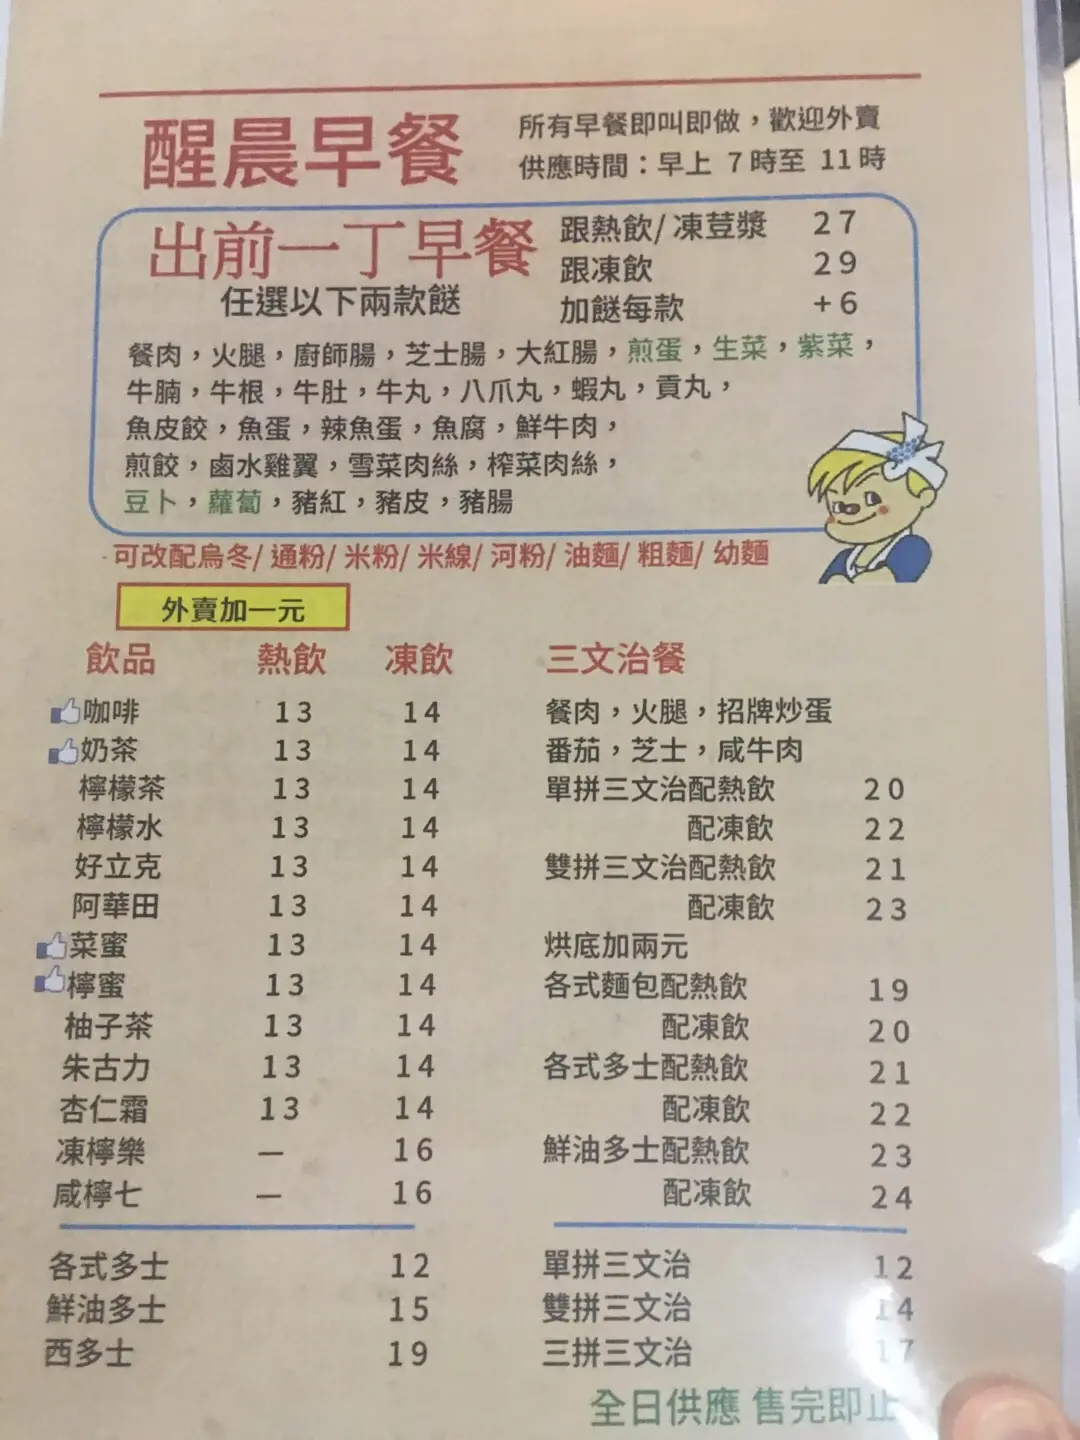 醒晨早餐
所有早餐即叫即做，歡迎外賣
供應時間：早上 7時至 11時
出前一丁早餐
任選以下兩款餸
跟熱飲/凍荳漿 27
跟凍飲 29
加餸每款 +6
餐肉，火腿，廚師腸，芝士腸，大紅腸，煎蛋，生菜，紫菜，
牛腩，牛根，牛肚，牛丸，八爪丸，蝦丸，貢丸，
魚皮餃，魚蛋，辣魚蛋，魚腐，鮮牛肉，
煎餃，鹵水雞翼，雪菜肉絲，榨菜肉絲，
豆卜，蘿蔔，豬紅，豬皮，豬腸
可改配烏冬/ 通粉/ 米粉/ 米線/ 河粉/ 油麵/ 粗麵/ 幼麵
外賣加一元
飲品 熱飲 凍飲
咖啡 13 14
奶茶 13 14
檸檬茶 13 14
檸檬水 13 14
好立克 13 14
阿華田 13 14
菜蜜 13 14
檸蜜 13 14
柚子茶 13 14
朱古力 13 14
杏仁霜 13 14
凍檸樂 — 16
咸檸七 — 16
各式多士 12
鮮油多士 15
西多士 19
三文治餐
餐肉，火腿，招牌炒蛋
番茄，芝士，咸牛肉
單拼三文治配熱飲 20
配凍飲 22
雙拼三文治配熱飲 21
配凍飲 23
烘底加兩元
各式麵包配熱飲 19
配凍飲 20
各式多士配熱飲 21
配凍飲 22
鮮油多士配熱飲 23
配凍飲 24
單拼三文治 12
雙拼三文治 14
三拼三文治 17
全日供應 售完即止